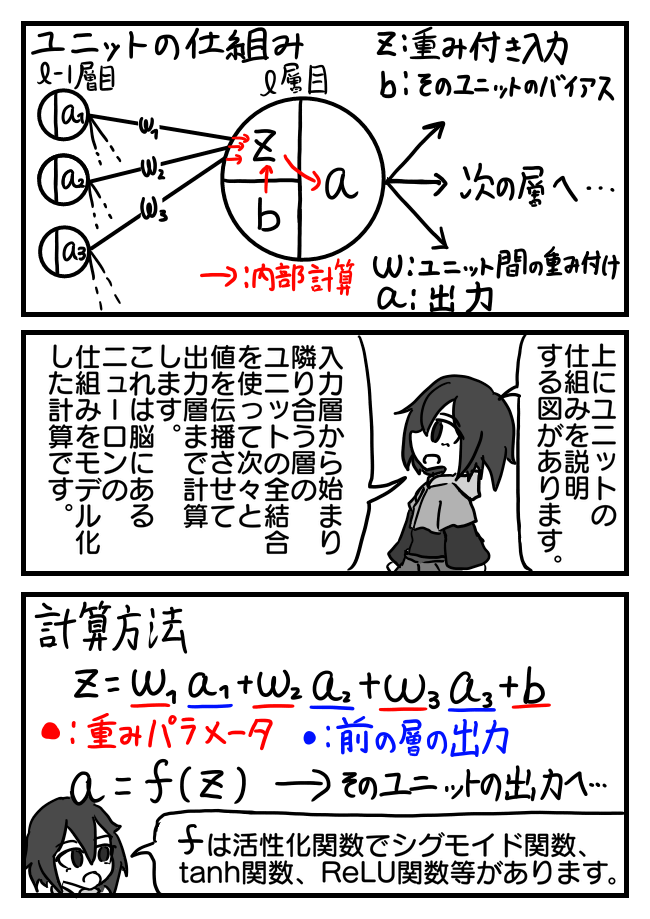 ユニットの仕組み
l-1層目
l層目
z:重み付き入力
b:そのユニットのバイアス
a1
a2
a3
w1
w2
w3
z
b
a
次の層へ…
→:内部計算
w:ユニット間の重み付け
a:出力
上にユニットの
仕組みを説明
する図があります。
入力層から始まり
隣り合う層の
ユニットの全結合
を使って次々と
値を伝播させて
出力層まで計算
します。
これは脳にある
ニューロンの
仕組みをモデル化
した計算です。
計算方法
z=w1a1+w2a2+w3a3+b
●:重みパラメータ ●:前の層の出力
a=f(z) →そのユニットの出力へ…
fは活性化関数でシグモイド関数、
tanh関数、ReLU関数等があります。